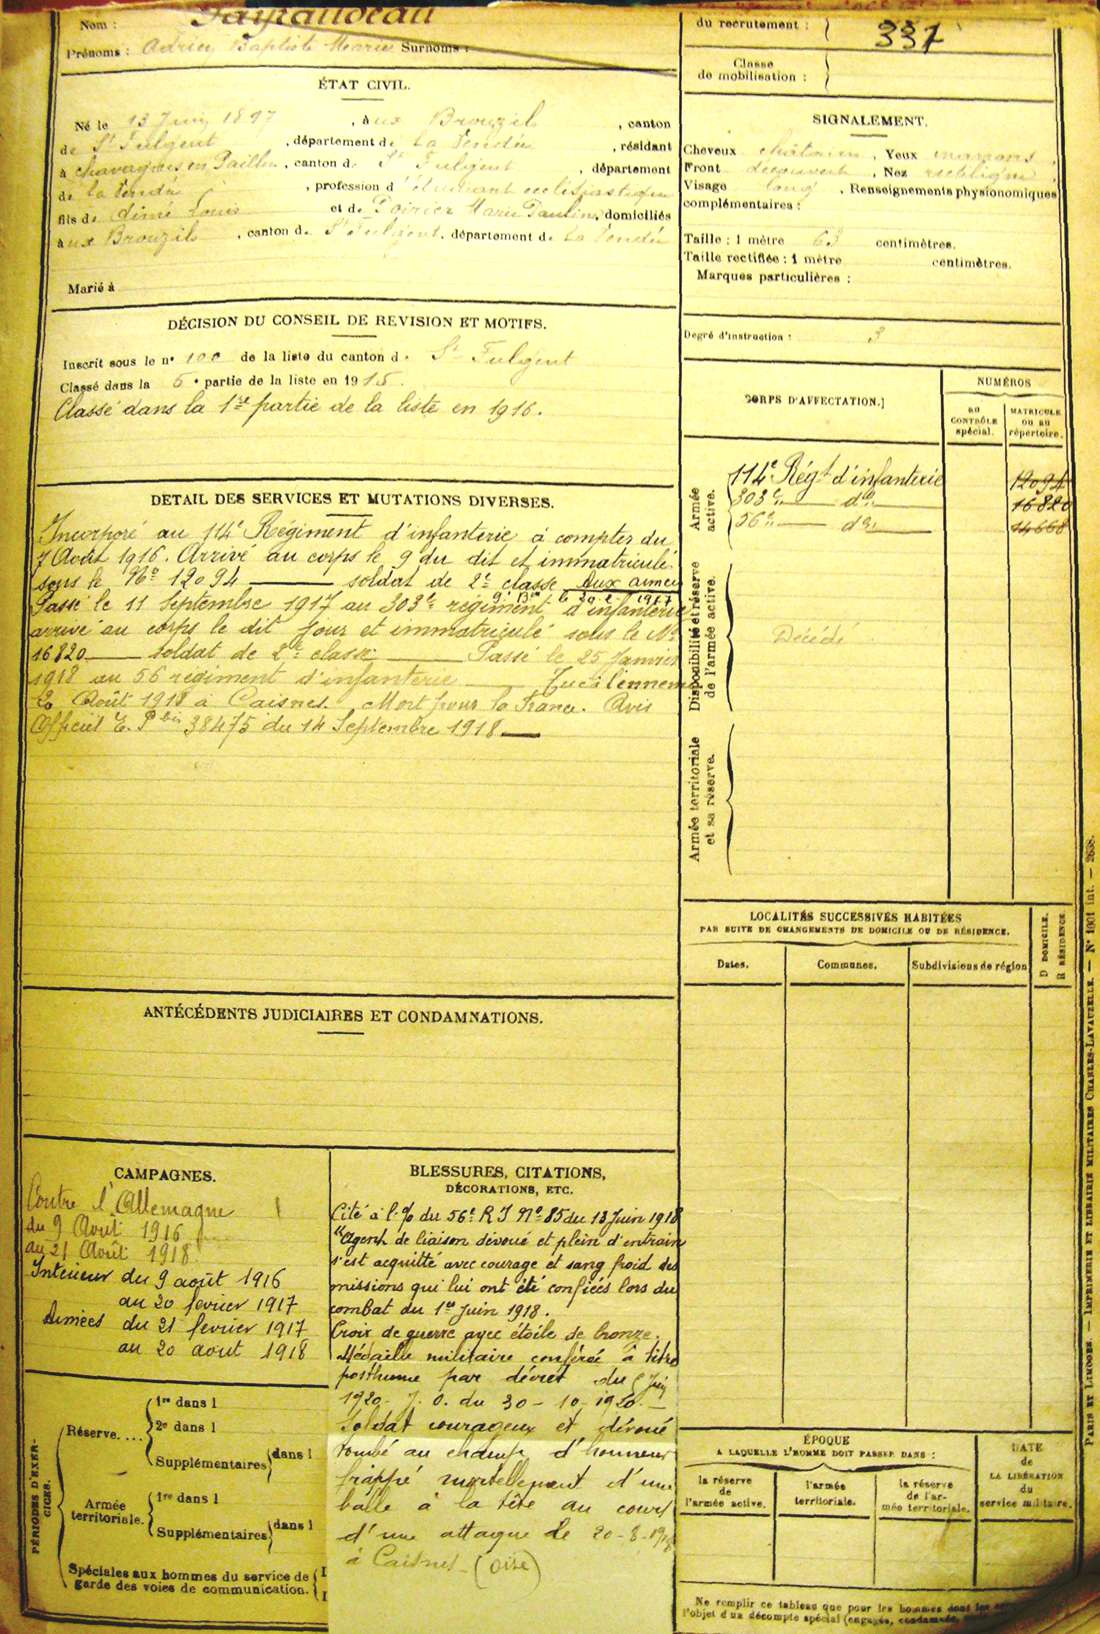 Nom : Payraudeau
Prénoms : Adrien Baptiste Marie Surnoms :
ÉTAT CIVIL.
Né le 13 Juin 1897, à ux Brouzils, canton
de St Fulgent, département de La Vendée, résidant
à Chavagnes en Paillers, canton de St Fulgent, département
de la Vendée, profession d'étudiant ecclésiastique
fils de Aimé Louis et de Poirier Marie Pauline, domiciliés
à ux Brouzils, canton de St Fulgent, département de La Vendée
Marié à
DÉCISION DU CONSEIL DE REVISION ET MOTIFS.
Inscrit sous le n° 100 de la liste du canton de St Fulgent
Classé dans la 5e partie de la liste en 1915.
Classé dans la 1re partie de la liste en 1916.
DETAIL DES SERVICES ET MUTATIONS DIVERSES.
Incorporé au 114e Régiment d'infanterie à compter du
7 Août 1916. Arrivé au corps le 9 du dit et immatriculé
sous le No 12094 soldat de 2e classe Aux armées
Passé le 11 Septembre 1917 au 303e régiment d'infanterie
arrivé au corps le dit jour et immatriculé sous le No
16820 soldat de 2e classe Passé le 25 Janvier
1918 au 56 régiment d'infanterie Tué à l'ennemi
Août 1918 à Caisnes. Mort pour la France. Avis
Officiel E. P bis 38475 du 14 Septembre 1918
ANTÉCÉDENTS JUDICIAIRES ET CONDAMNATIONS.
CAMPAGNES.
Contre l'Allemagne
du 9 Août 1916
au 21 Août 1918
Intérieur du 9 août 1916
au 20 février 1917
Armées du 21 février 1917
au 20 août 1918
PÉRIODES D'EXER-
CICES.
Réserve....
1re dans l
2e dans l
Supplémentaires dans l
Armée
territoriale.
1re dans l
Supplémentaires dans l
Spéciales aux hommes du service de
garde des voies de communication.
BLESSURES, CITATIONS,
DÉCORATIONS, ETC.
Cité à l'o/ du 56e R I No 85 du 13 Juin 1918
"Agent de liaison dévoué et plein d'entrain
s'est acquitté avec courage et sang froid des
missions qui lui ont été confiées lors du
combat du 1er Juin 1918.
Croix de guerre avec étoile de bronze.
Médaille militaire conférée à titre
posthume par décret du Juin
1920. J. O. du 30-10-1920.
Soldat courageux et dévoué
tombé au champ d'honneur
frappé mortellement d'une
balle à la tête au cours
d'une attaque le 20-8-1918
à Caisnes (Oise)
du recrutement : 337
Classe
de mobilisation :
SIGNALEMENT.
Cheveux châtains, Yeux marrons,
Front découvert, Nez rectiligne,
Visage long, Renseignements physionomiques
complémentaires :
Taille : 1 mètre 63 centimètres.
Taille rectifiée : 1 mètre centimètres.
Marques particulières :
Degré d'instruction : 3
CORPS D'AFFECTATION.
NUMÉROS
AU
CONTRÔLE
spécial.
MATRICULE
OU AU
répertoire.
Armée
active.
114e Régt d'infanterie 12094
303e do 16820
56e do 14668
Disponibilité et réserve
de l'armée active.
Décédé
Armée territoriale
et sa réserve.
LOCALITÉS SUCCESSIVES HABITÉES
PAR SUITE DE CHANGEMENTS DE DOMICILE OU DE RÉSIDENCE.
Dates.
Communes.
Subdivisions de région
D DOMICILE.
R RÉSIDENCE.
ÉPOQUE
A LAQUELLE L'HOMME DOIT PASSER DANS :
la réserve
de
l'armée active.
l'armée
territoriale.
la réserve
de l'ar-
mée territoriale.
DATE
de
LA LIBÉRATION
du
service militaire.
Ne remplir ce tableau que pour les hommes dont les
l'objet d'un décompte spécial (engagés, condamnés,
PARIS ET LIMOGES. — IMPRIMERIE ET LIBRAIRIE MILITAIRES CHARLES-LAVAUZELLE. — N° 1601 int. — 2638.